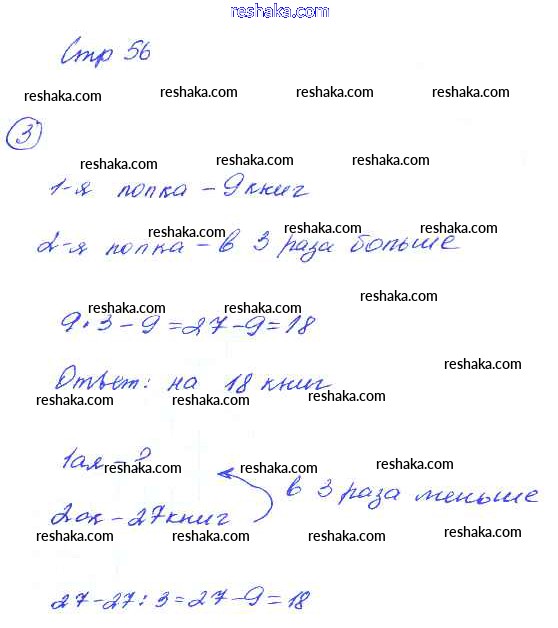 reshaka.com
Стр 56
reshaka.com reshaka.com reshaka.com reshaka.com
3
reshaka.com reshaka.com reshaka.com
1-я полка – 9 книг
reshaka.com reshaka.com reshaka.com
2-я полка – в 3 раза больше
reshaka.com
reshaka.com reshaka.com
9·3–9=27–9=18
reshaka.com
Ответ: на 18 книг
reshaka.com reshaka.com reshaka.com
1ая – ?
reshaka.com reshaka.com reshaka.com
в 3 раза меньше
2ая – 27 книг
reshaka.com reshaka.com reshaka.com reshaka.com
27–27:3=27–9=18